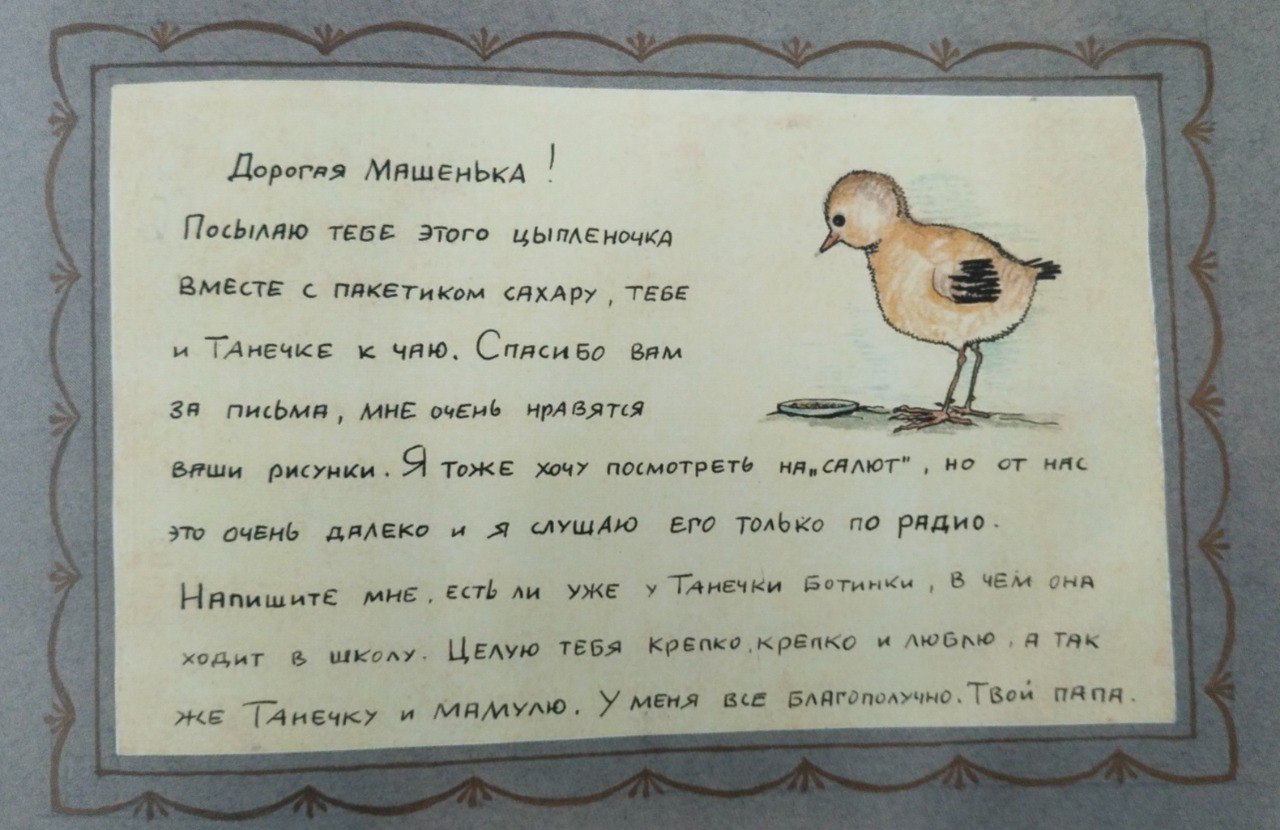 Дорогая Машенька!
Посылаю тебе этого цыпленочка
вместе с пакетиком сахару, тебе
и Танечке к чаю. Спасибо вам
за письма, мне очень нравятся
ваши рисунки. Я тоже хочу посмотреть на „салют", но от нас
это очень далеко и я слушаю его только по радио.
Напишите мне, есть ли уже у Танечки ботинки, в чем она
ходит в школу. Целую тебя крепко, крепко и люблю, а так
же Танечку и мамулю. У меня все благополучно. Твой папа.